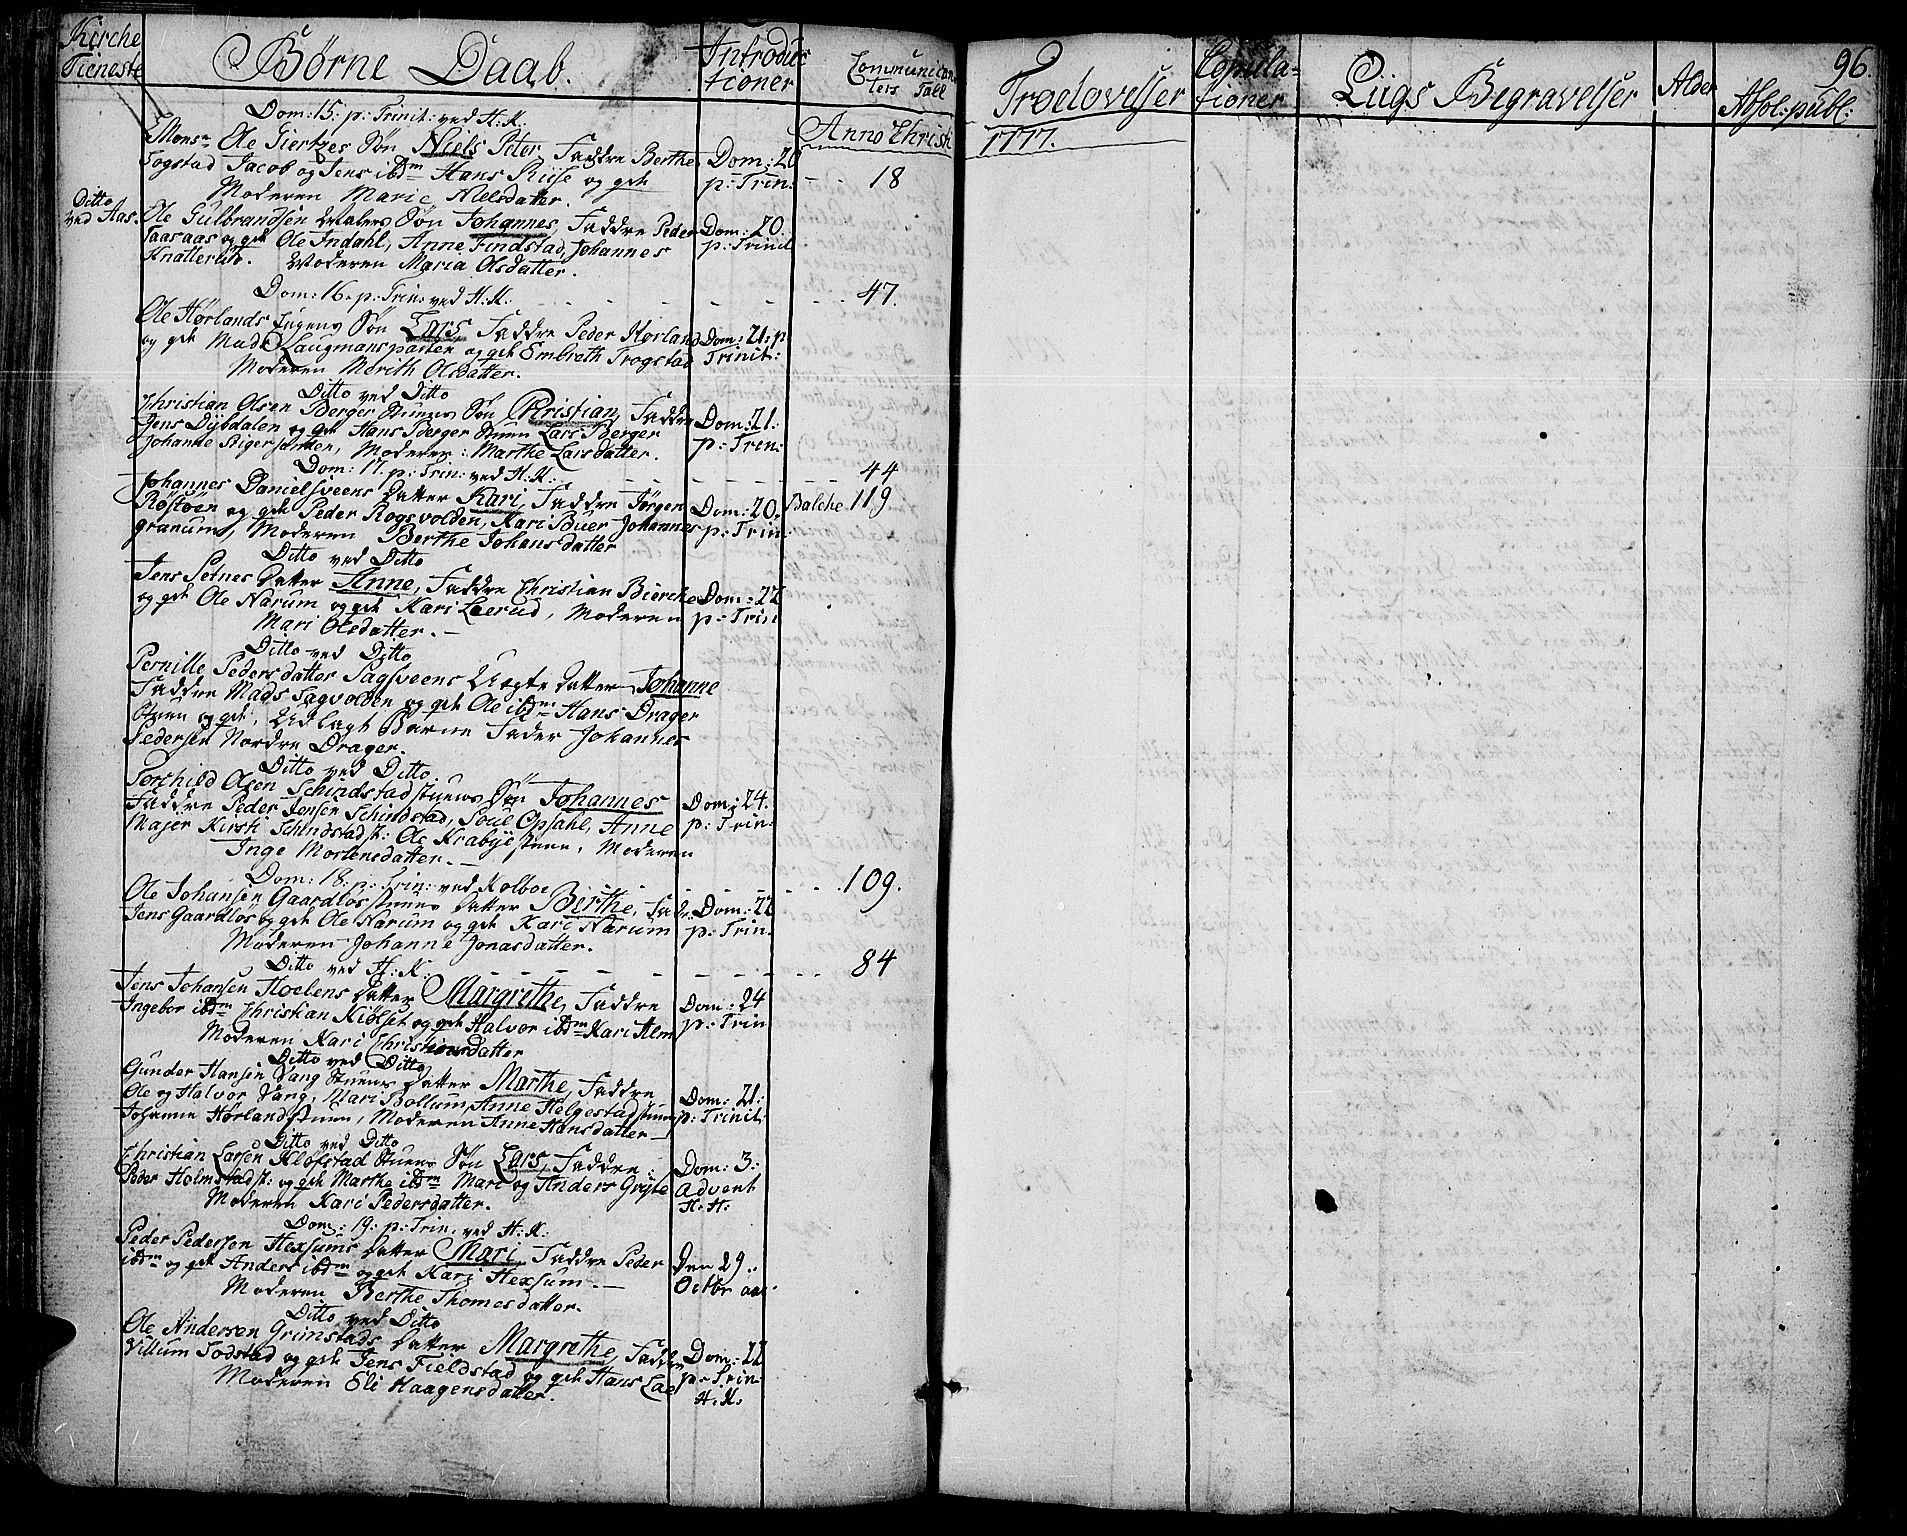 Kirche
Tieneste
Børne Daab.
Introduc
tioner
Communican
ters Tall
Troelovelser
Copula-
tioner
Liigs Begravelser
Alder
Absol: publ:
96.
Anno Christi
1777.
Dom: 15: p: Trinit: ved H: K:
Mons: Ole Giertzes Søn Niels Peter, Faddre Berthe
Togstad Jacob og Jens ibdm Hans Riise og qde
Moderen Marie Nielsdatter.
Dom: 20
p: Trin:
18
Ditto
ved Aas.
Ole Gulbrandsen Søn Johannes, Faddre Peder
Taasaas og qde Ole Indahl, Anne Findstad, Johannes
Knatterud. Moderen Maria Olsdatter.
Dom: 20.
p: Trinit
Dom: 16. p: Trin: ved H: K:
47.
Ole Hørlands Eugens Søn Lars Faddre Peder Hørland
og qde Mads Laugmansparten og qde Embreth Trogstad
Moderen Marith Olsdatter.
Dom: 21: p
Trinit:
Ditto ved Ditto
Christian Olsen Berger Stuens Søn Christian, Faddre
Jens Dybdalen og qde Hans Berger Stuen Lars Berger
Johanne Stigersanden, Moderen: Marthe Larsdatter.
Dom: 21.
p: Trin:
Dom: 17. p: Trin: ved H: K:
44
Johannes Danielsveens Datter Kari, Faddre Jørgen
Røstøen og qde Peder Rogsvolden, Kari Buer Johannes
granum, Moderen Berthe Johansdatter
Dom: 20.
p: Trin:
Balche 119
Ditto ved Ditto
Jens Setnes Datter Anne, Faddre Christian Bierche
og qde Ole Narum og qde Kari Loerud, Moderen
Mari Olsdatter.
Dom: 22
p: Trin
Ditto ved Ditto
Pernille Pedersdatter Sagsveens Uægte Datter Johanne
Faddre Mads Sagvolden og qde Ole ibdm Hans Drager
Stuen og qde, Udlagt Barne Fader Johannes
Pedersen Nordre Drager.
Ditto ved Ditto
Torchild Olsen Schindstadstuens Søn Johannes
Faddre Peder Jensen Schindstad, Poul Opsahl, Anne
Majer Kirsti Schindstadst: Ole Krabyestuen, Moderen
Inge Mortensdatter.
Dom: 24.
p: Trin:
Dom: 18: p: Trin: ved Kolboe
109.
Ole Johansen Gaardløs stuens Datter Berthe, Faddr:
Jens Gaardløs og qde Ole Narum og qde Kari Narum
Moderen Johanne Jonasdatter.
Dom: 22
p: Trin.
Ditto ved H: K:
84
Jens Johansen Hoelens Datter Margrethe, Faddre
Ingebor ibdm Christian Kiølset og qde Halvor ibdm Kari Alm
Moderen Kari Christiansdatter
Dom: 24
p: Trin
Ditto ved Ditto
Gunder Hansen Vang Stuens Datter Marthe, Faddre
Ole og Halvor Vang, Mari Bollum, Anne Helgestadstuen
Johanne Hørlandstuen, Moderen Anne Hansdatter
Dom: 21:
p: Trinit.
Ditto ved Ditto
Christian Larsen Kløfstad Stuens Søn Lars, Faddre:
Peder Holmstadst: og qde Marthe ibdm Mari og Anders Gryte
Moderen Kari Pedersdatter.
Dom: 3:
Advent
H: K:
Dom: 19: p: Trin: ved H: K:
Peder Pedersen Hexsums Datter Mari, Faddre Peder
ibdm og qde Anders ibdm og qde Kari Hexsum
Moderen Berthe Thomesdatter.
Den 29.
Octbr aas
Ditto ved Ditto
Ole Andersen Grimstads Datter Margrethe, Faddre
Villum Sodstad og qde Jens Fieldstad og qde Hans Lae
Moderen Eli Haagensdatter.
Dom: 22
p: Trin
H: K: